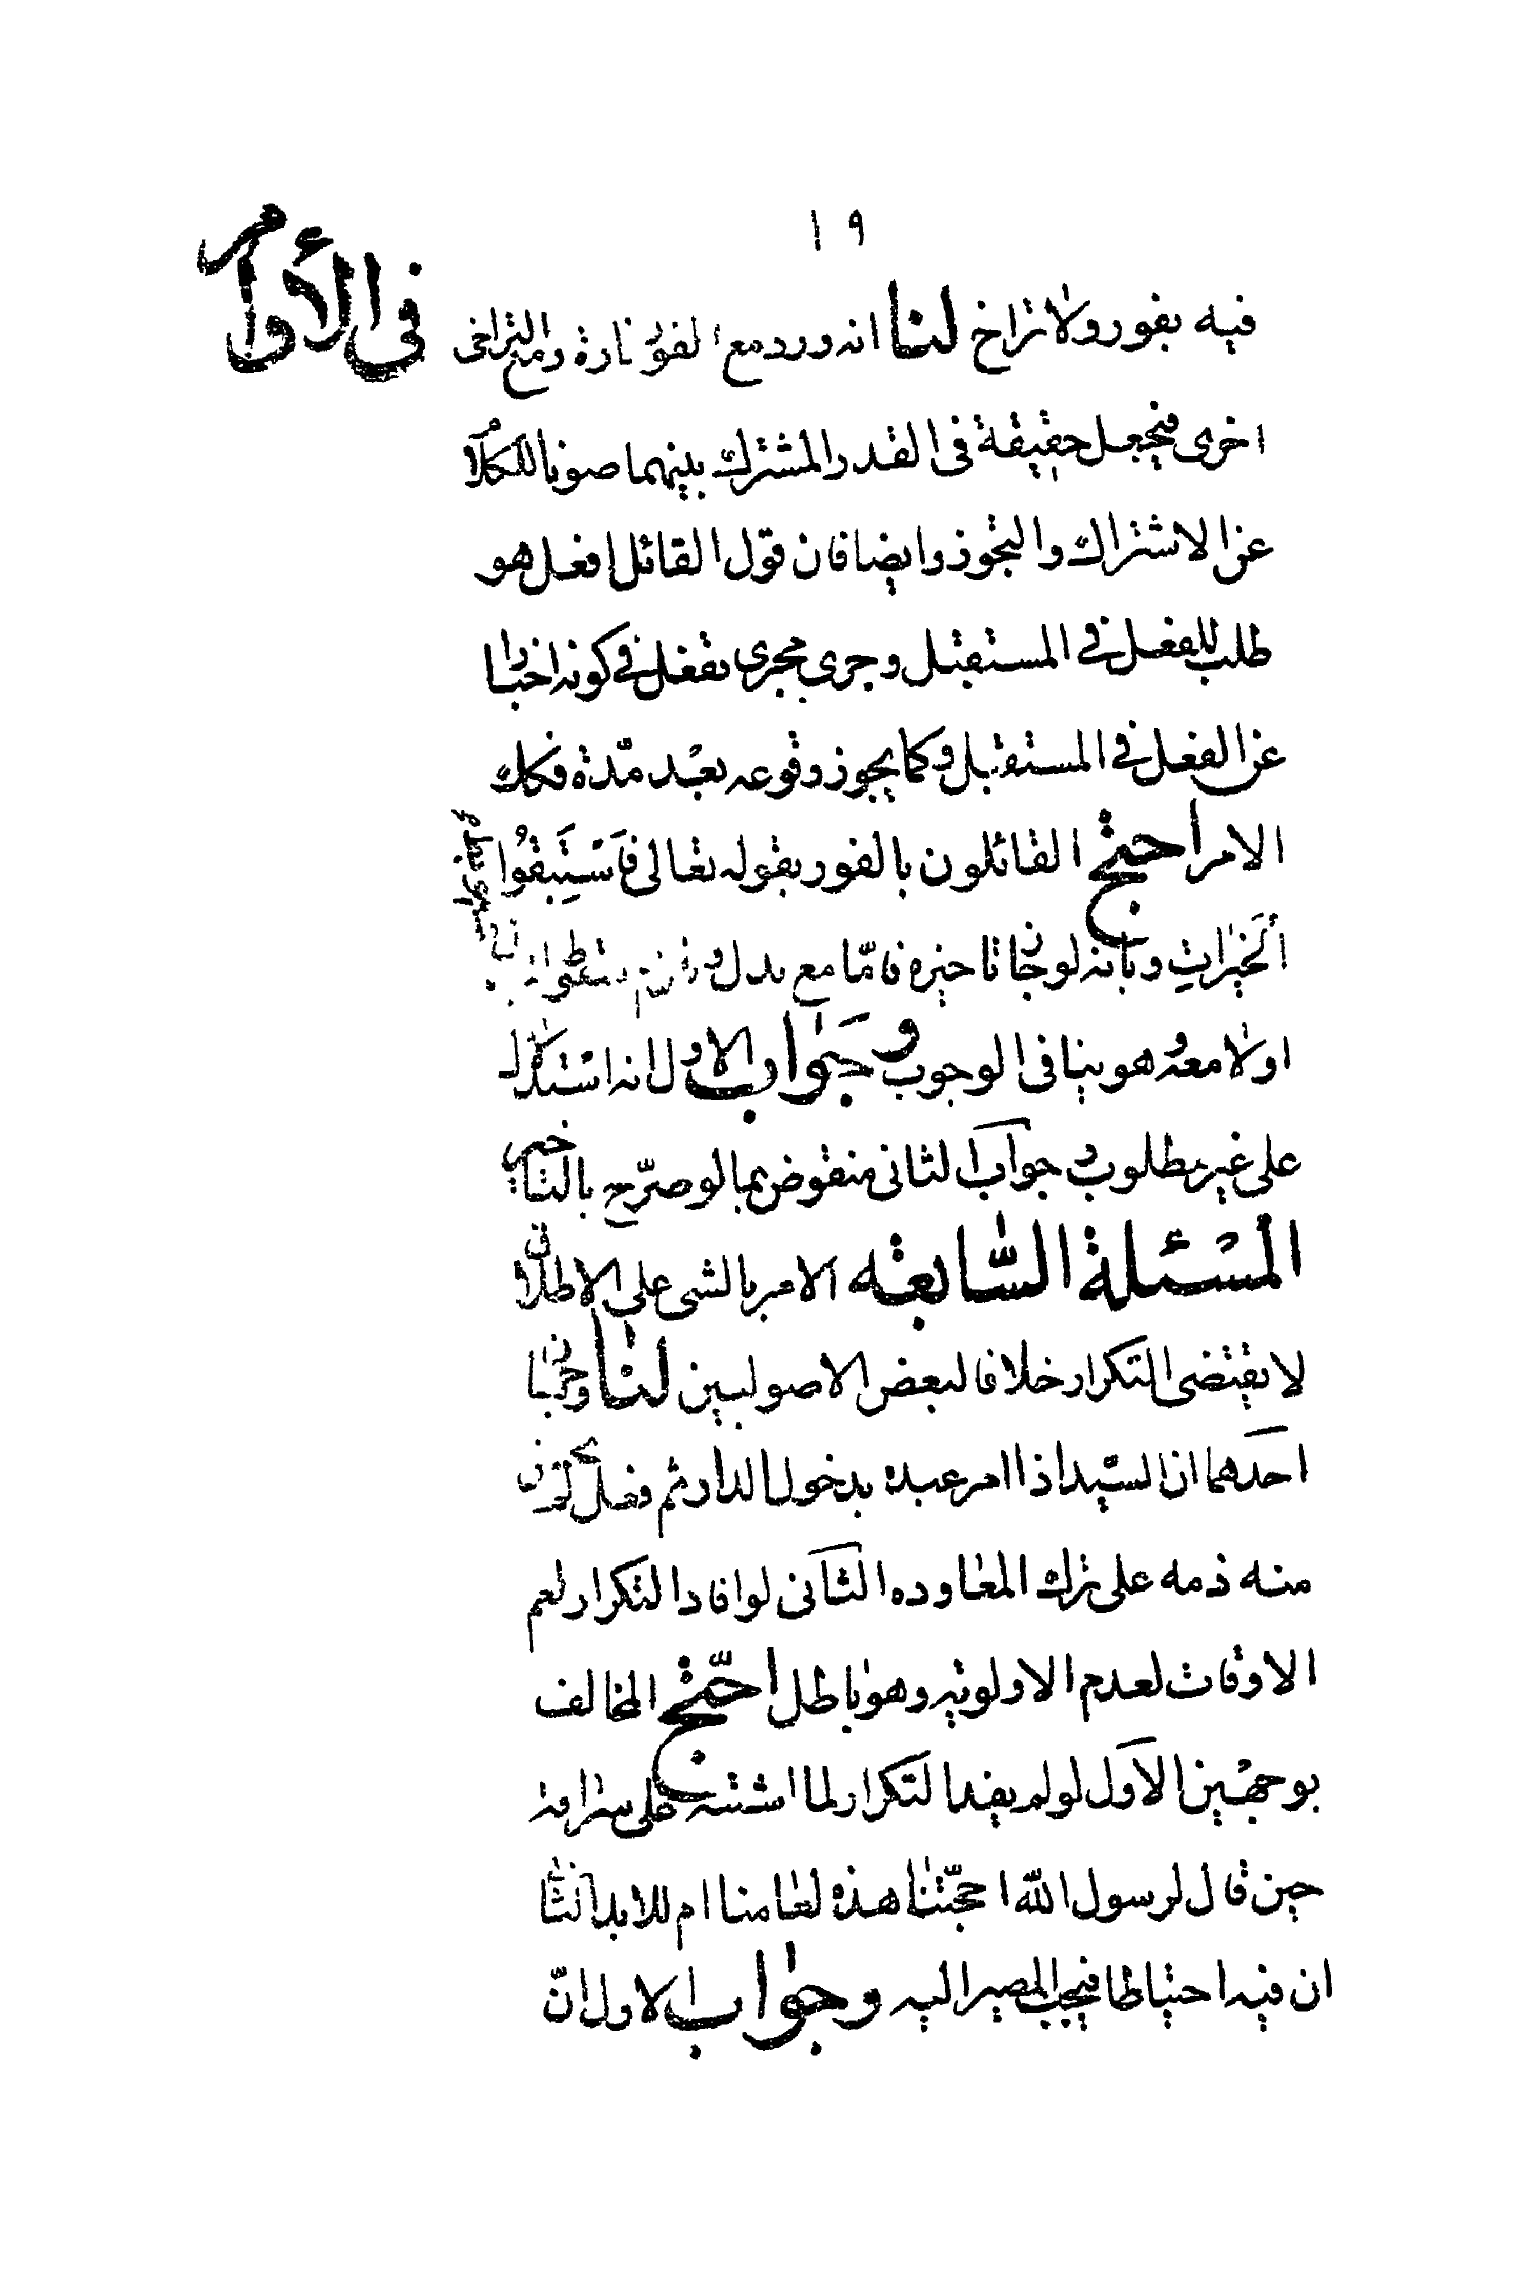 ١٩
في الأوامر
فيه بفور ولا تراخ لنا انه ورد مع الفور تارة ومع التراخى
اخرى فيجعل حقيقة فى القدر المشترك بينهما صونا للكلام
عن الاشتراك والتجوز وايضا فان قول القائل افعل هو
طلب للفعل في المستقبل وجرى مجرى تفعل في كونه اخبارا
عن الفعل في المستقبل وكما يجوز وقوعه بعد مدّة فكك
الامر احتج القائلون بالفور بقوله تعالى فَاسْتَبِقُوا
الخَيْراتِ وبانه لو جاز تاخيره فامّا مع بدل و
اولا معه وهو ينافى الوجوب وجواب الاول انه استدلال
على غير مطلوب وجواب الثانى منقوض بما لو صرّح بالتاخير
المسئلة السّابعة الامر بالشى على الاطلاق
لا يقتضى التكرار خلافا لبعض الاصوليين لنا وجهان
احدهما ان السيّد اذا امر عبده بدخول الدار ثم فعل لم يحسن
منه ذمه على ترك المعاوده الثانى لو افاد التكرار لعم
الاوقات لعدم الاولوية وهو باطل احتّج المخالف
بوجهين الاول لو لم يفد التكرار لما اشتبه على سراقة
حين قال لرسول اللّه احجّتنا هذه لعامنا ام للابد الثانى
ان فيه احتياطا فيجب المصير اليه وجواب الاول انّ